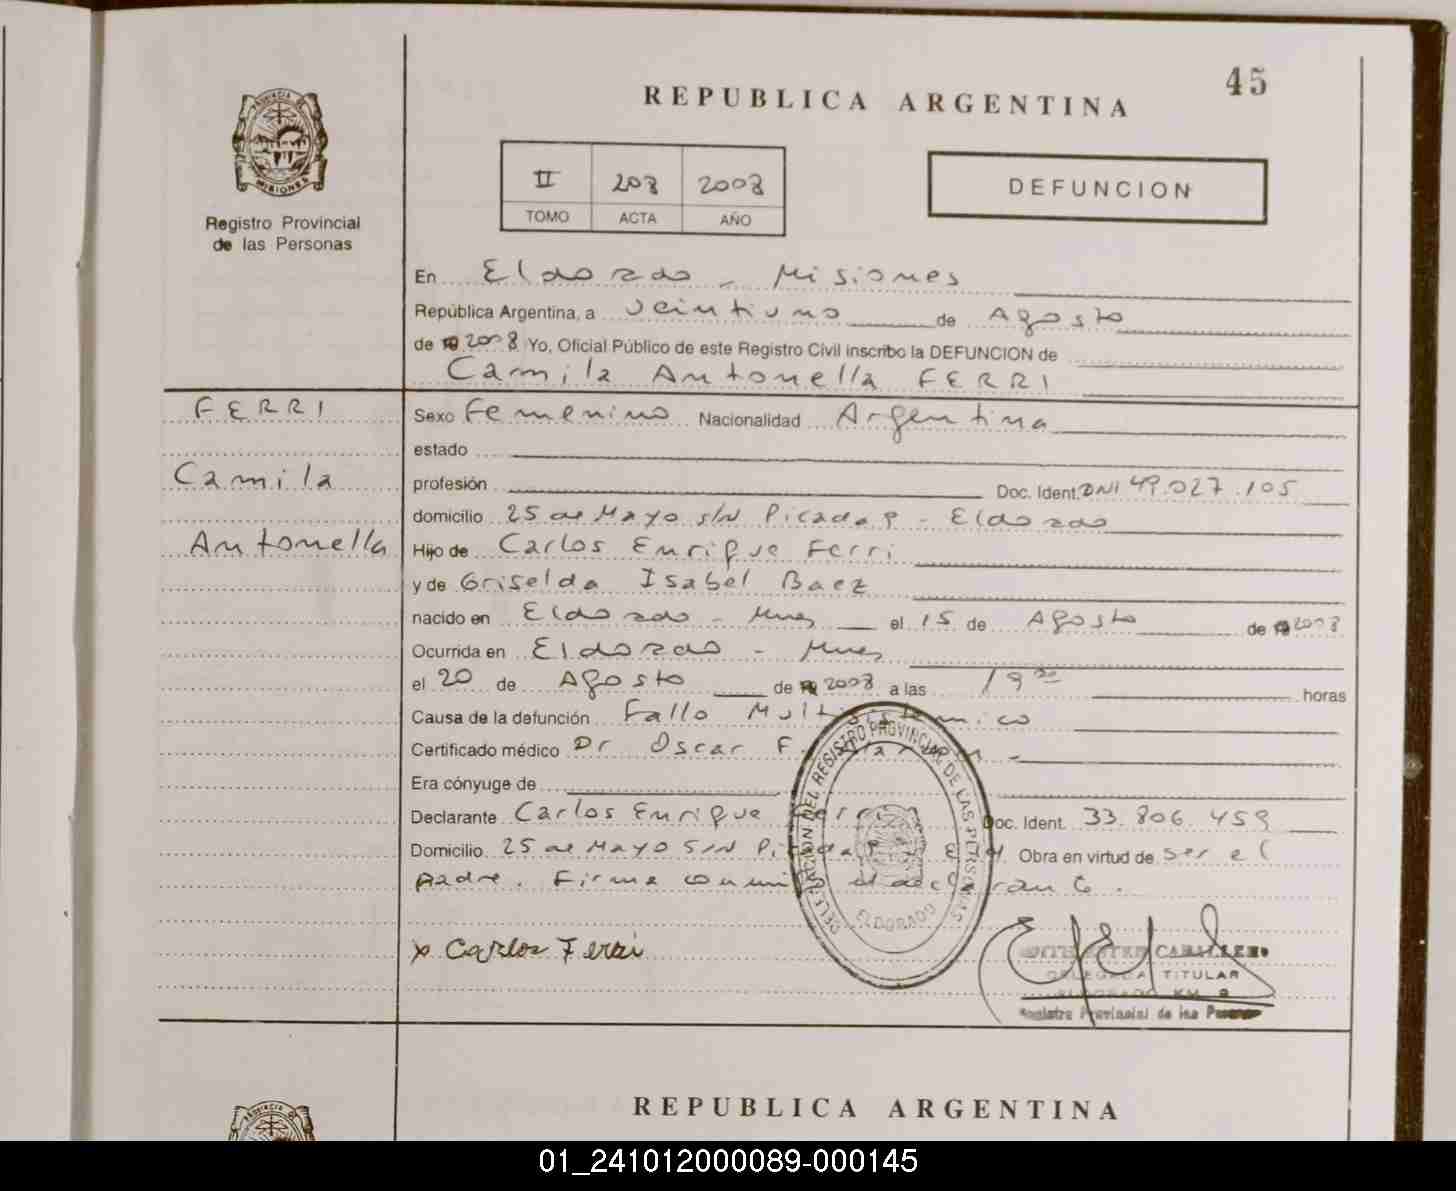 45
REPUBLICA ARGENTINA
PROVINCIA DE
MISIONES
Registro Provincial
de las Personas
II 208 2008
TOMO ACTA AÑO
DEFUNCION
En Eldorado - Misiones
República Argentina, a veintiuno de Agosto
de 2008 Yo, Oficial Público de este Registro Civil inscribo la DEFUNCION de
Camila Antonella FERRI
FERRI
Camila
Antonella
Sexo Femenino Nacionalidad Argentina
estado
profesión Doc. Ident. DNI 49.027.105
domicilio 25 de Mayo s/N Picada 9 - Eldorado
Hijo de Carlos Enrique Ferri
y de Griselda Isabel Baez
nacido en Eldorado - Mnes el 15 de Agosto de 2008
Ocurrida en Eldorado - Mnes
el 20 de Agosto de 2008 a las 19 00 horas
Causa de la defunción Fallo Multisistemico
Certificado médico Dr Oscar F.
Era cónyuge de
Declarante Carlos Enrique Ferri Doc. Ident. 33.806.459
Domicilio 25 de Mayo S/N Picada 9 Obra en virtud de Ser el
Padre. Firma conmigo el declarante.
DELEGACION DEL REGISTRO PROVINCIAL DE LAS PERSONAS
ELDORADO
x Carlos Ferri
CABALLERO
DELEGADA TITULAR
ELDORADO KM 9
Registro Provincial de las Personas
REPUBLICA ARGENTINA
01_241012000089-000145